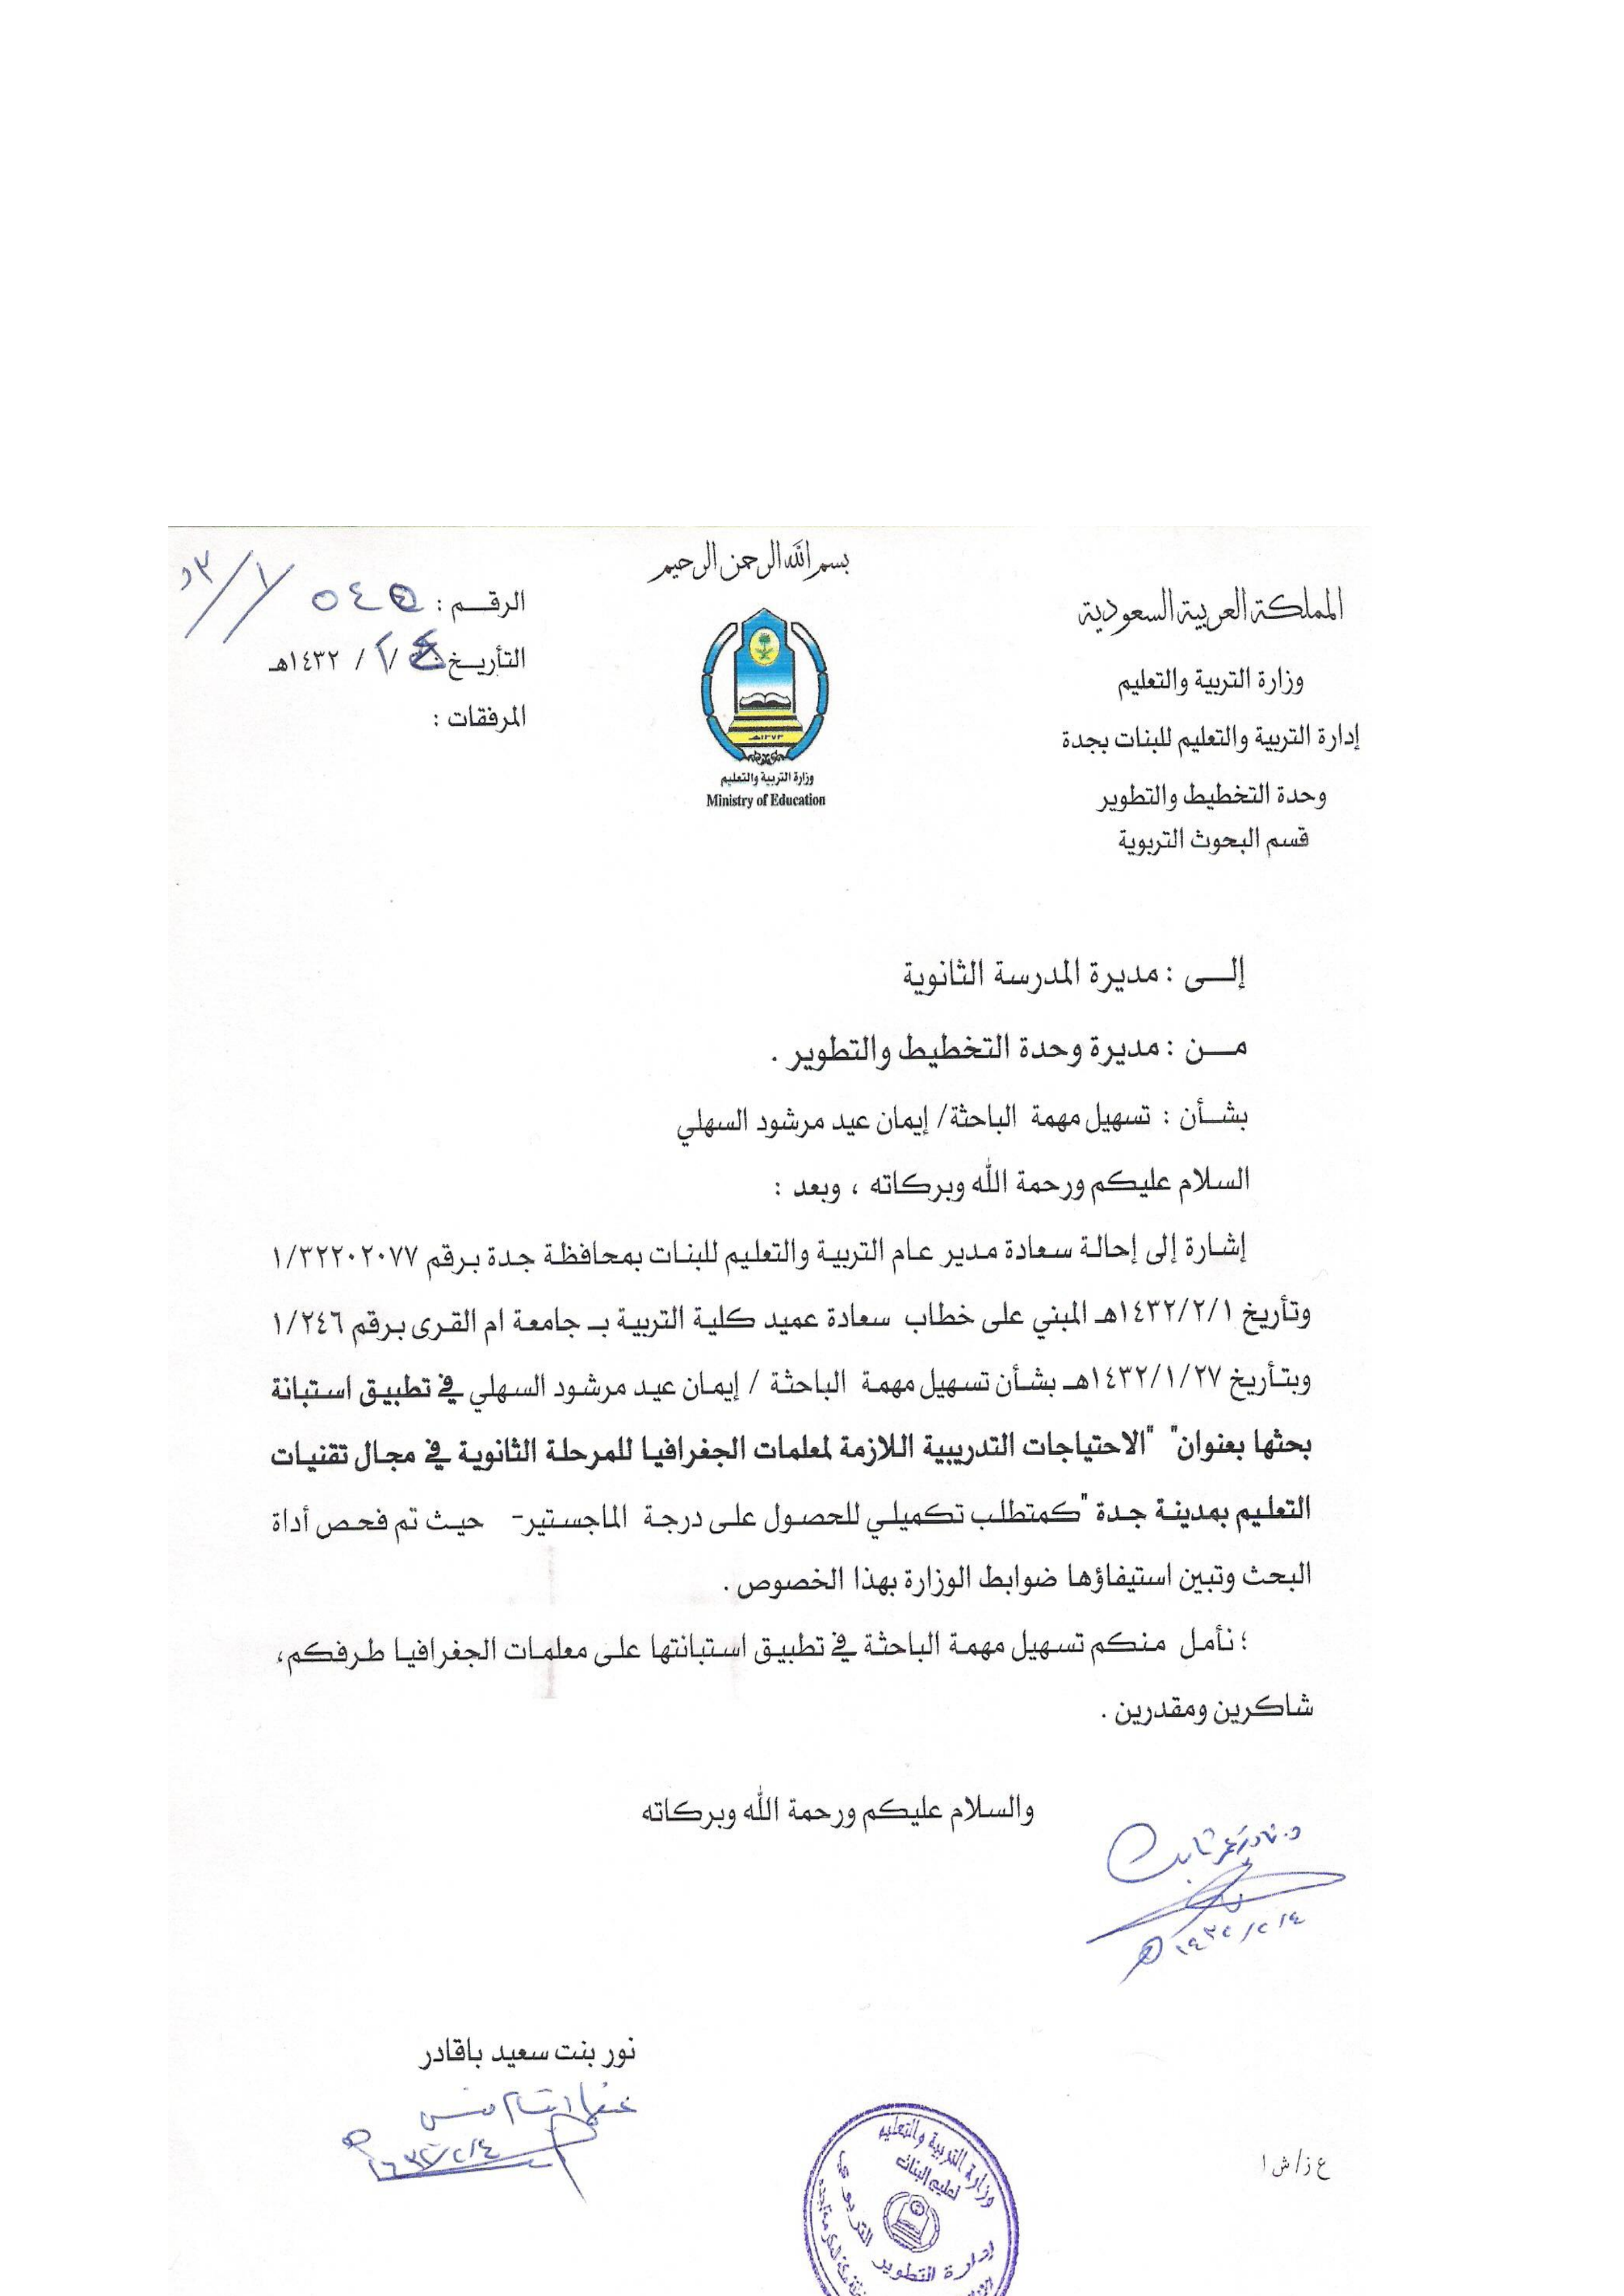 بسم الله الرحمن الرحيم
المملكة العربية السعودية
وزارة التربية والتعليم
إدارة التربية والتعليم للبنات بجدة
وحدة التخطيط والتطوير
قسم البحوث التربوية
١٣٧٣هـ
وزارة التربية والتعليم
Ministry of Education
الرقـــم :
التأريـخ / / ١٤٣٢هـ
المرفقات :
إلـــى : مديرة المدرسة الثانوية
مـــن : مديرة وحدة التخطيط والتطوير .
بشــأن : تسهيل مهمة الباحثة/ إيمان عيد مرشود السهلي
السلام عليكم ورحمة الله وبركاته ، وبعد :
إشارة إلى إحالة سعادة مدير عام التربية والتعليم للبنات بمحافظة جدة برقم ١/٣٢٢٠٢٠٧٧
وتأريخ ١٤٣٢/٢/١هـ المبني على خطاب سعادة عميد كلية التربية بـ جامعة ام القرى برقم ١/٢٤٦
وبتأريخ ١٤٣٢/١/٢٧هـ بشأن تسهيل مهمة الباحثة / إيمان عيد مرشود السهلي في تطبيق استبانة
بحثها بعنوان" "الاحتياجات التدريبية اللازمة لمعلمات الجغرافيا للمرحلة الثانوية في مجال تقنيات
التعليم بمدينة جدة "كمتطلب تكميلي للحصول على درجة الماجستير- حيث تم فحص أداة
البحث وتبين استيفاؤها ضوابط الوزارة بهذا الخصوص .
؛ نأمل منكم تسهيل مهمة الباحثة في تطبيق استبانتها على معلمات الجغرافيا طرفكم،
شاكرين ومقدرين .
والسلام عليكم ورحمة الله وبركاته
١٤٣٢/٢/٤هـ
نور بنت سعيد باقادر
١٤٣٢/٢/٤هـ
وزارة التربية والتعليم
تعليم البنات
إدارة التطوير التربوي
ع ز/ ش ا